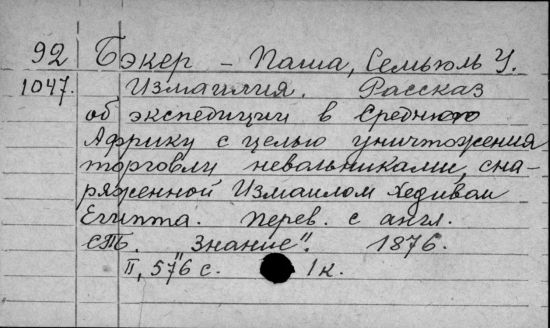 92 Бэкер - Паша, Семьюль У.
1047. Измаилия. Рассказ
об экспедиции в Среднюю
Африку с целью уничтожения
торговли невольниками, сна-
ряженной Измаилом хедивом
Египта. Перев. с англ.
СПб. "Знание". 1876.
II, 576 с. 1к.